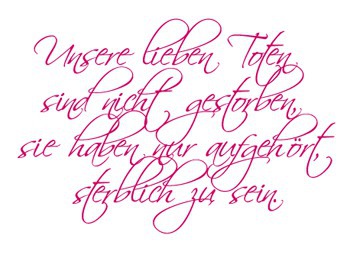 Unsere lieben Toten
sind nicht gestorben,
sie haben nur aufgehört,
sterblich zu sein.